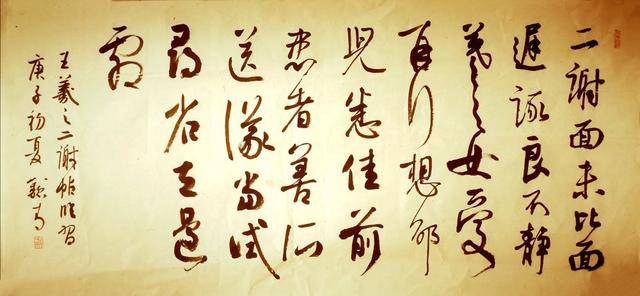 二謝面未比面
遲詠良不靜
羲之女愛
再拜想邵
兒悉佳前
患者善所
送議當試
尋省左邊
劇
王羲之二謝帖臨習
庚子初夏